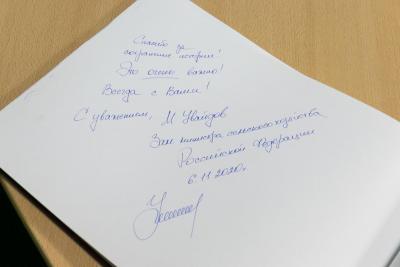 Спасибо за
сохранение истории!
Это очень важно!
Всегда с Вами!
С уважением, М Увайдов
Зам министра сельского хозяйства
Российской Федерации
6.11.2020г